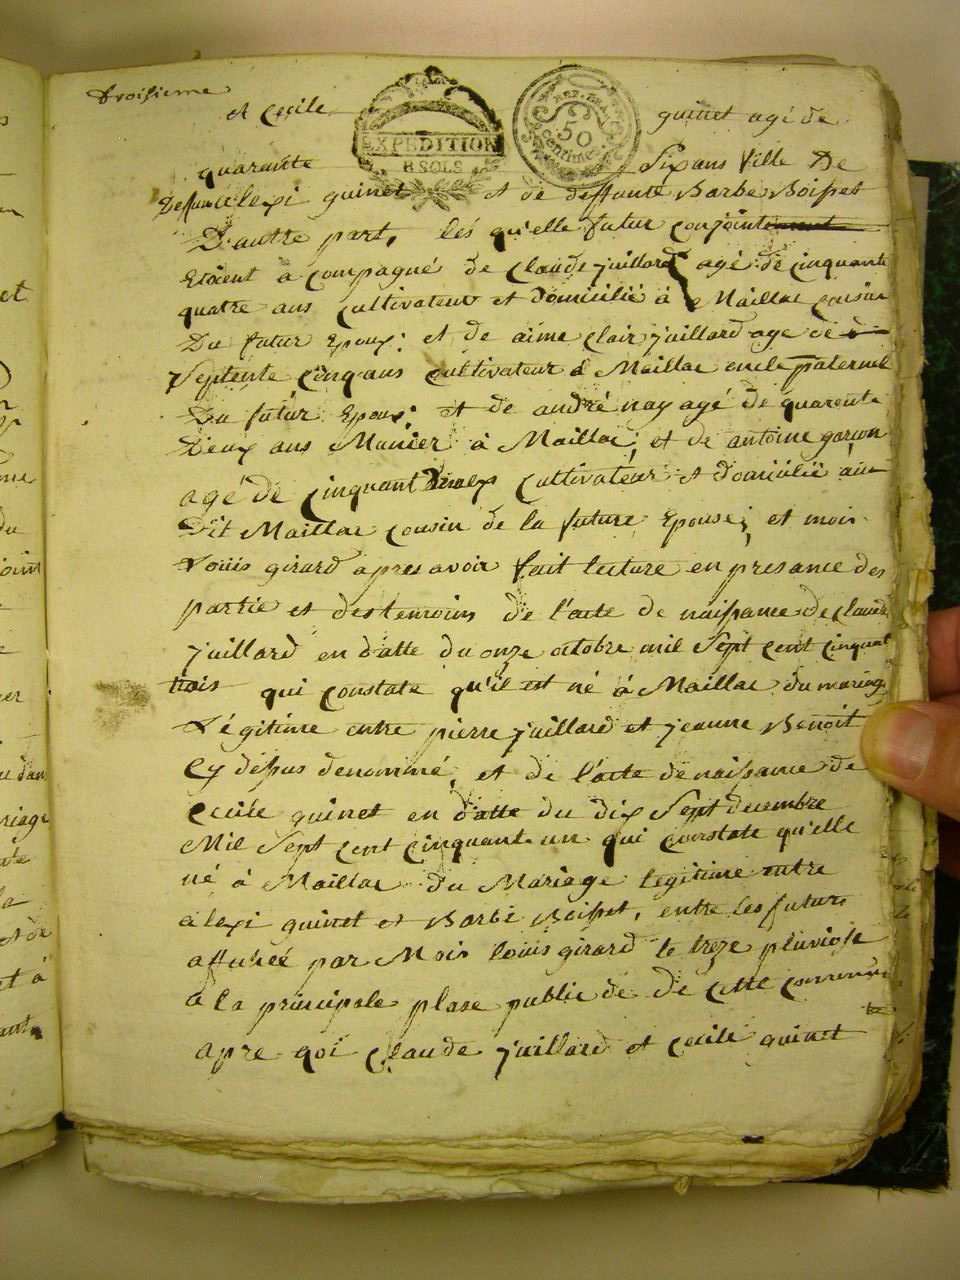 troisieme
et Cecile guinet agé de
EXPEDITION
8 SOLS
50
Centimes
quarante Six ans fille De
Deffun alexi guinet et de deffunte Barbe Boisset
D'autre part, lés qu'elle futur conjoint
Etoient a compagné de Claude juillard agé de cinquante
quatre ans cultivateur et domicilié à Maillac cousin
Du futur Epoux; et de aimé clair juillard agé de
Septente cinq ans cultivateur à Maillac oncle paternel
Du futur Epoux; et de andré nay agé de quarente
Deux ans Munier à Maillac; et de antoine garçon
agé de cinquant deux Cultivateur et domicilié au
Dit Maillac cousin de la future Epouse; et mois
Loüis girard apres avoir fait lecture en presance des
partie et des temoins de l'acte de naissance de Claude
juillard en datte du onze octobre mil Sept cent cinquant
trois qui constate qu'il est né à Maillac du mariage
Légitime entre pierre juillard et jeanne Benoit
Cy dessus denommé, et de l'acte de naissance de
Cecile guinet en datte du dix Sept decembre
Mil Sept cent cinquant un qui constate qu'elle
né à Maillac du Mariage legitime entre
alexi guinet et Barbe Boisset, entre les futurs
affichée par Mois louis girard le treze pluviose
a la principale plase publicde de cette commune
apre qoi Claude juillard et Cecile guinet